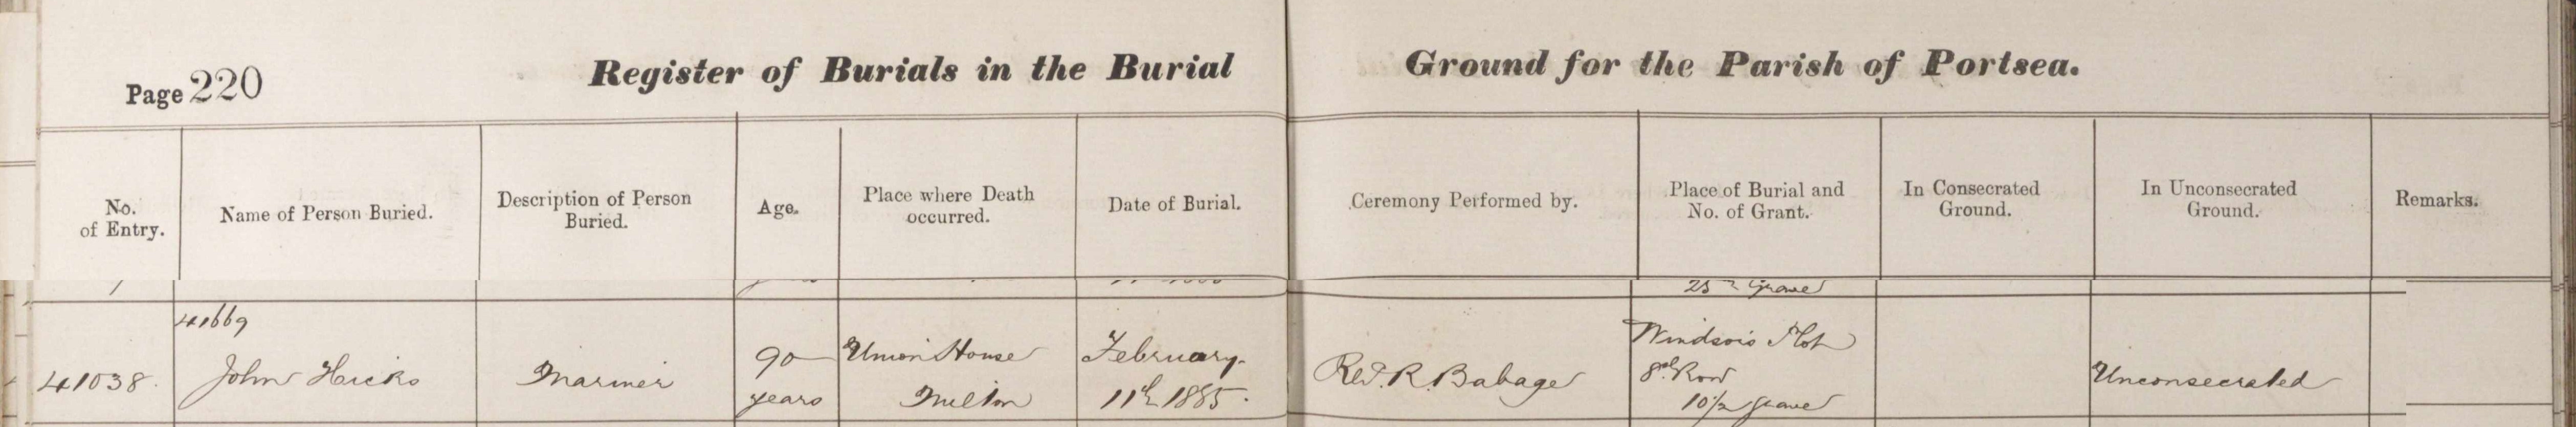 Page 220
Register of Burials in the Burial Ground for the Parish of Portsea.
No.
of Entry.
Name of Person Buried.
Description of Person
Buried.
Age.
Place where Death
occurred.
Date of Burial.
Ceremony Performed by.
Place of Burial and
No. of Grant.
In Consecrated
Ground.
In Unconsecrated
Ground.
Remarks.
25th Grave
41669
41038.
John Hicks
Mariner
90
years
Union House
Milton
February
11th 1885.
Revd. R. Babage
Windsors Plot
8th Row
10½ grave
Unconsecrated